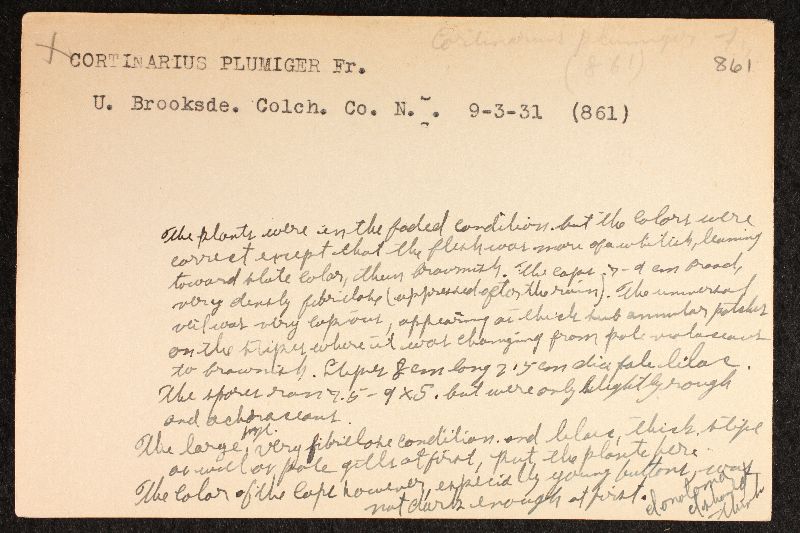 Cortinarius plumiger Fr.
(861)
861
CORTINARIUS PLUMIGER Fr.
U. Brooksde. Colch. Co. N. . 9-3-31 (861)
The plants were in the faded condition but the colors were
correct except that the flesh was more of a whitish, leaning
toward slate color, then brownish. The caps 7-9 cm broad,
very densly fibrillose (appressed after the rain). The universal
veil was very copious, appearing as thick sub annular patches
on the stipes where it was changing from pale violaceous
to brownish. Stipes 8 cm long 2.5 cm dia pale lilac.
The spores run 7.5-9 x 5. but were only slightly rough
and ochraceous.
The large, very fibrillose condition and lilac, thick stipe
as well as pale gills at first, put the plants here.
The color of the caps however, especially young buttons, was
not dark enough at first.
do not